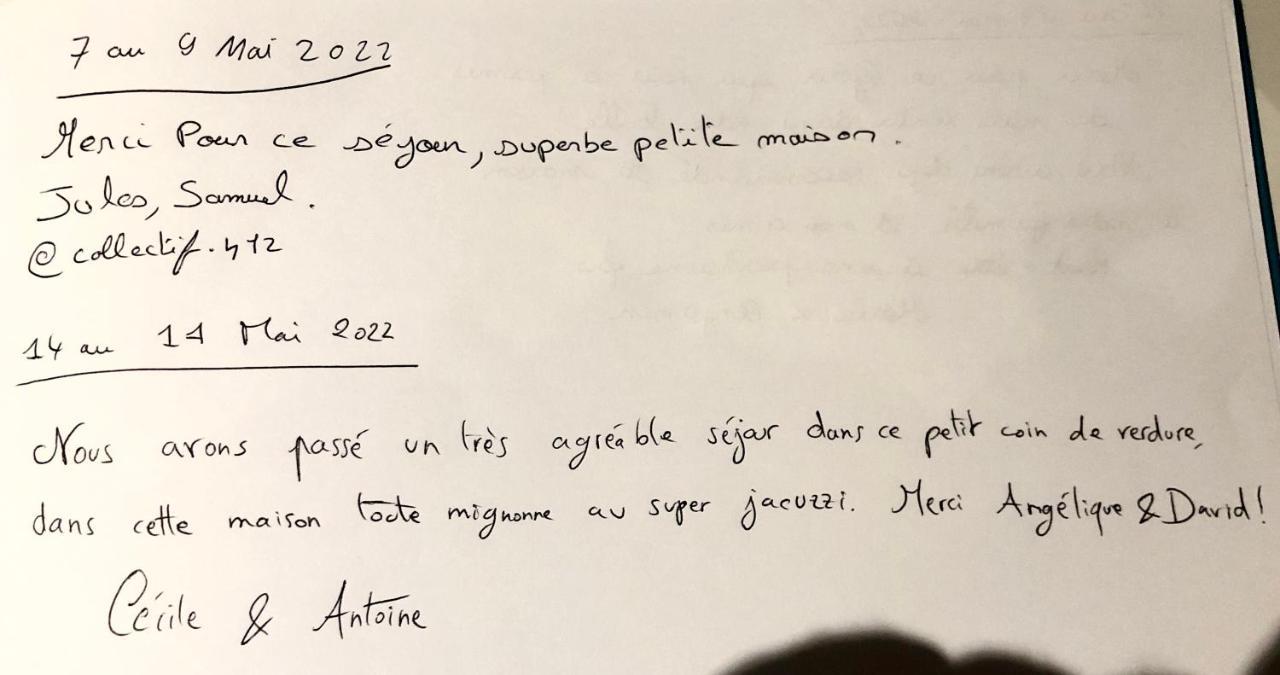 7 au 9 Mai 2022
Merci Pour ce séjour, superbe petite maison.
Jules, Samuel.
@collectif.412
14 au 14 Mai 2022
Nous avons passé un très agréable séjour dans ce petit coin de verdure,
dans cette maison toute mignonne au super jacuzzi. Merci Angélique & David!
Cécile & Antoine